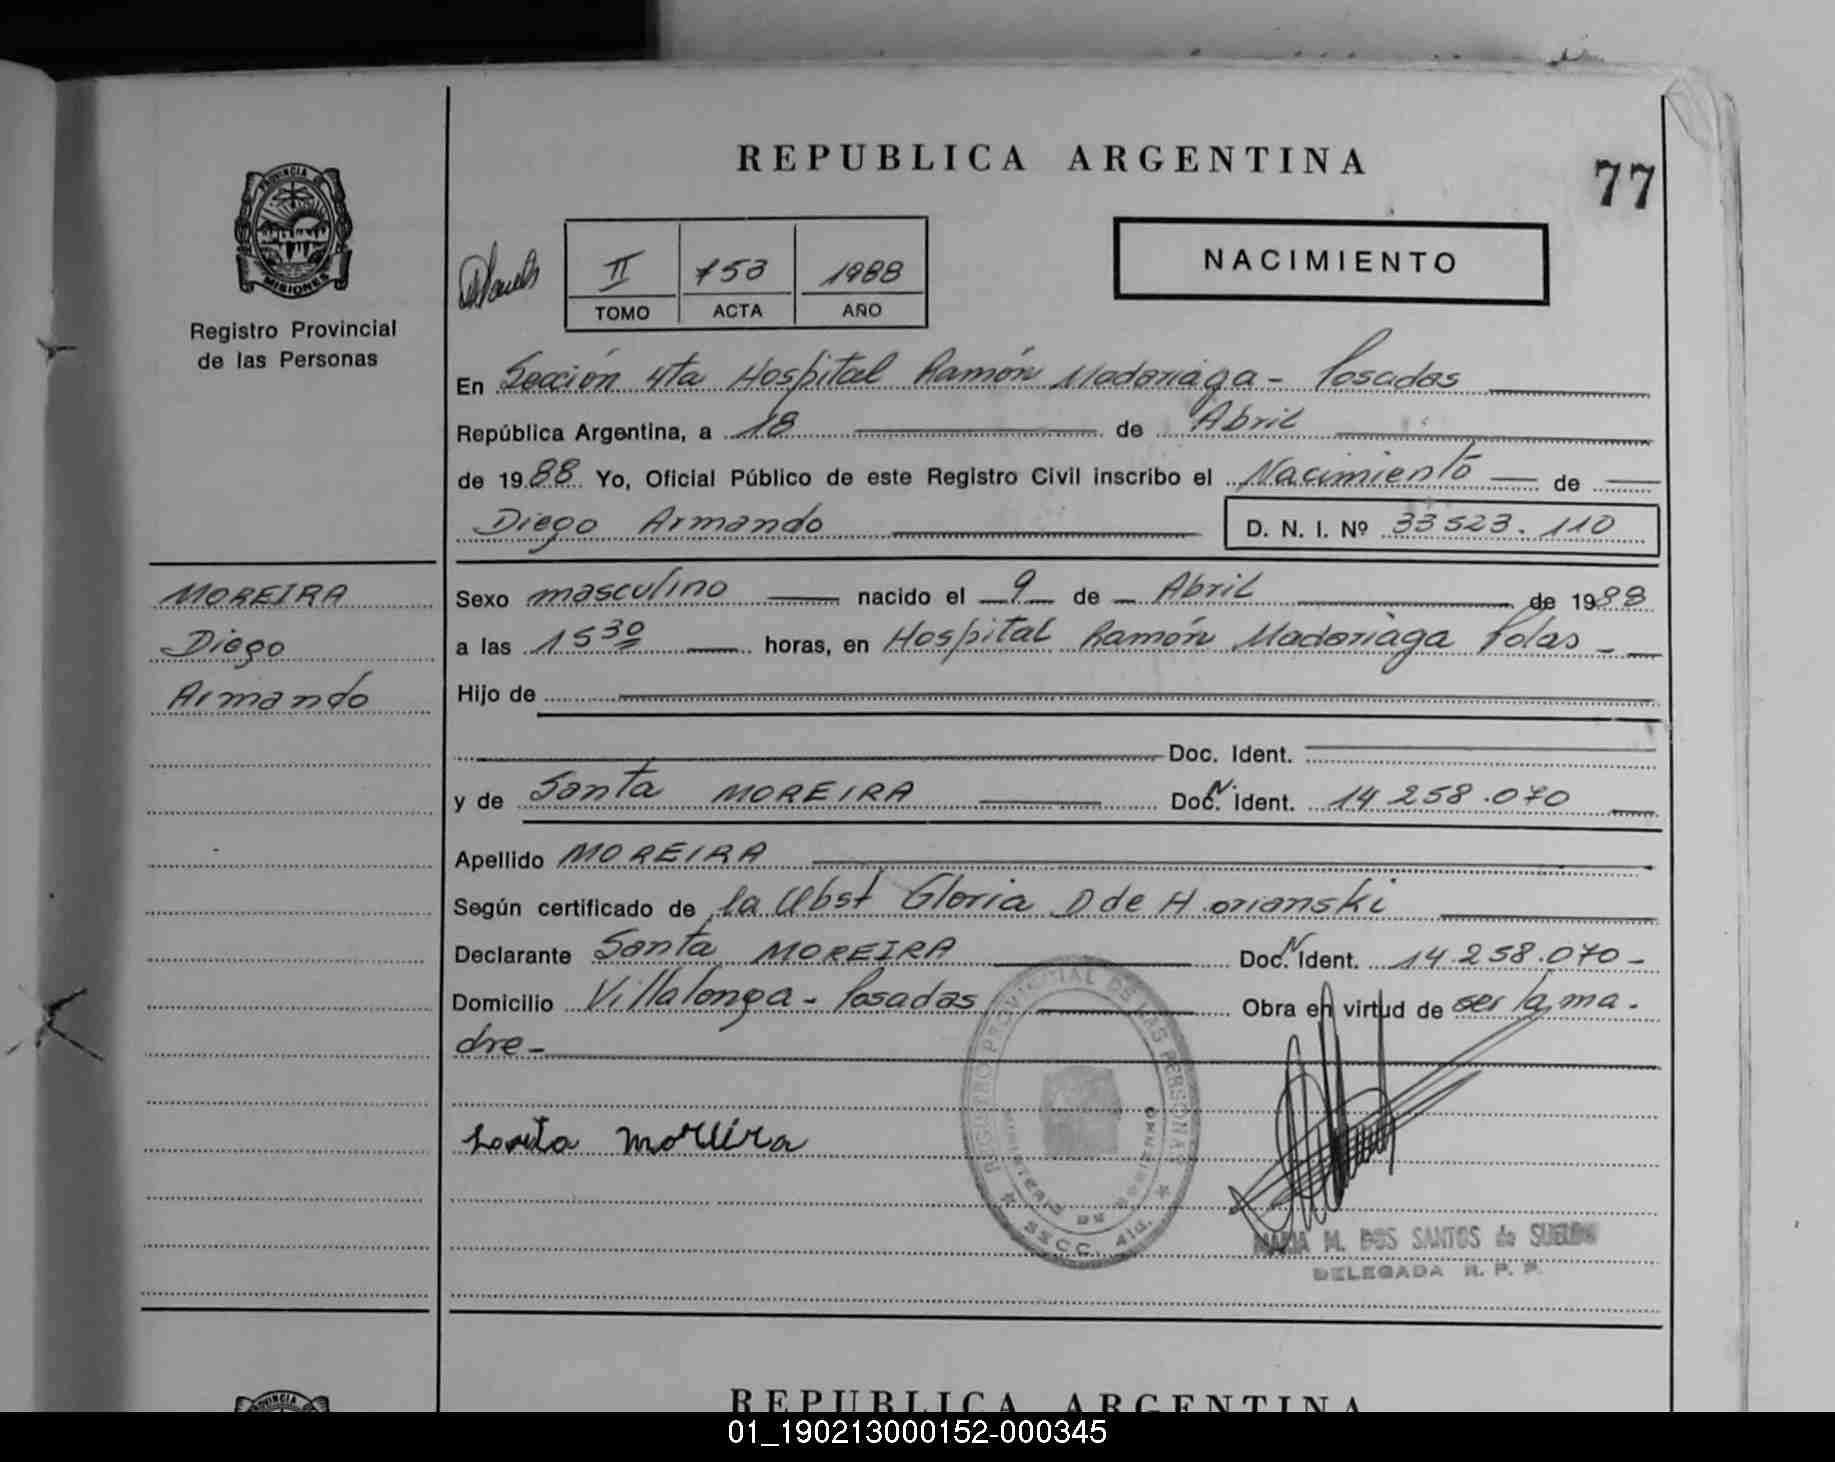 REPUBLICA ARGENTINA
77
PROVINCIA DE
MISIONES
Registro Provincial
de las Personas
II 753 1988
TOMO ACTA AÑO
NACIMIENTO
En Sección 4ta Hospital Ramón Madariaga - Posadas
República Argentina, a 18 de Abril
de 1988 Yo, Oficial Público de este Registro Civil inscribo el Nacimiento de
Diego Armando D. N. I. Nº 33 523.110
MOREIRA
Diego
Armando
Sexo masculino nacido el 9 de Abril de 1988
a las 15 30 horas, en Hospital Ramón Madariaga Pdas -
Hijo de
Doc. Ident.
y de Santa MOREIRA Doc. N. Ident. 14 258.070
Apellido MOREIRA
Según certificado de la Obst Gloria D de
Declarante Santa MOREIRA Doc. N Ident. 14.258.070 -
Domicilio Villalonga - Posadas Obra en virtud de ser la ma-
dre -
REGISTRO PROVINCIAL DE LAS PERSONAS
MINISTERIO DE GOBIERNO
SECC. 4ta.
Santa Moreira
MARIA M. DOS SANTOS de
DELEGADA R. P. P.
PROVINCIA
REPUBLICA ARGENTINA
01_190213000152-000345